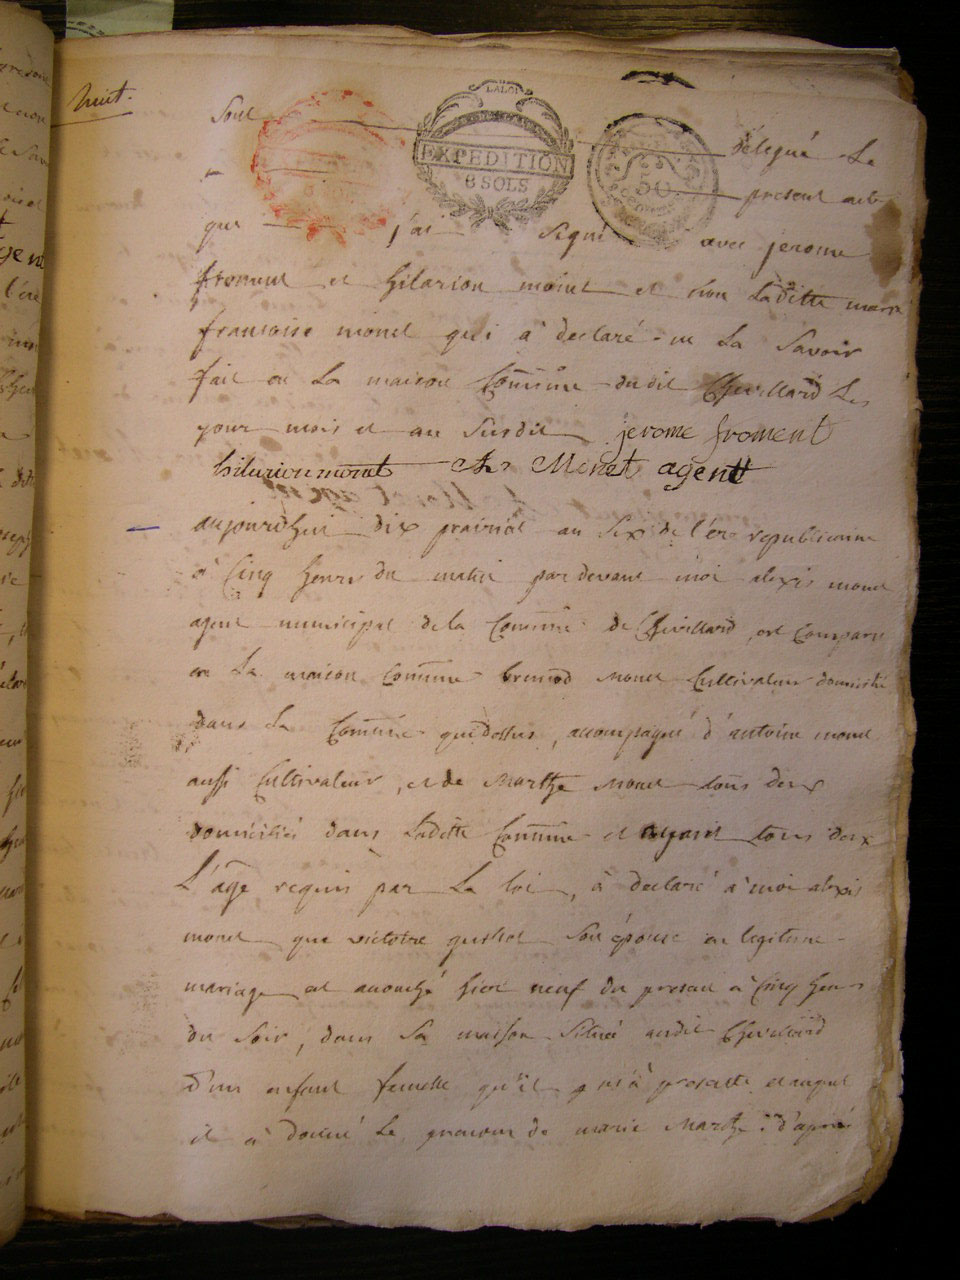 huit.
LA LOI
EXPEDITION
6 SOLS
50
sont délégué Le
present acte
que j'ai signé avec jerome
froment et hilarion monet et non Laditte marie
francoise monet qui a declaré ne La Savoir
fait en La maison Comune dudit Chevillard Les
jour mois et an Susdit jerome froment
hilarion monet Monet agent
aujourdhui dix prairial an Six de l'ére republicaine
à Cinq heures du matin par devant moi alexis monet
agent municipal de la Comune de Chevillard est Comparu
en La maison Comune monet Cultivateur domicilié
dans La Comune que dessus, accompagné d'antoine monet
aussi Cultivateur, et de Marthe Monet tous deux
domiciliés dans Laditte Comune et ayant tous deux
L'age requis par La loi, à declaré à moi alexis
monet que victoire son épouse en legitime
mariage est accouché hier neuf du present à Cinq heures
du soir, dans sa maison située audit Chevillard
d'un enfant femelle qu'il m'a presenté et auquel
il à donné Le prenom de marie Marthe. d'après